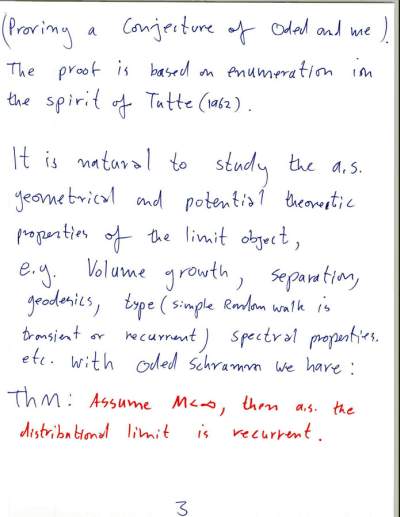 (Proving a Conjecture of Oded and me).
The proof is based on enumeration in
the spirit of Tutte (1962).
It is natural to study the a.s.
geometrical and potential theoretic
properties of the limit object,
e.g. Volume growth, separation,
geodesics, type (simple Random walk is
transient or recurrent) spectral properties.
etc. with Oded Schramm we have:
Thm: Assume M<∞, then a.s. the
distributional limit is recurrent.
3